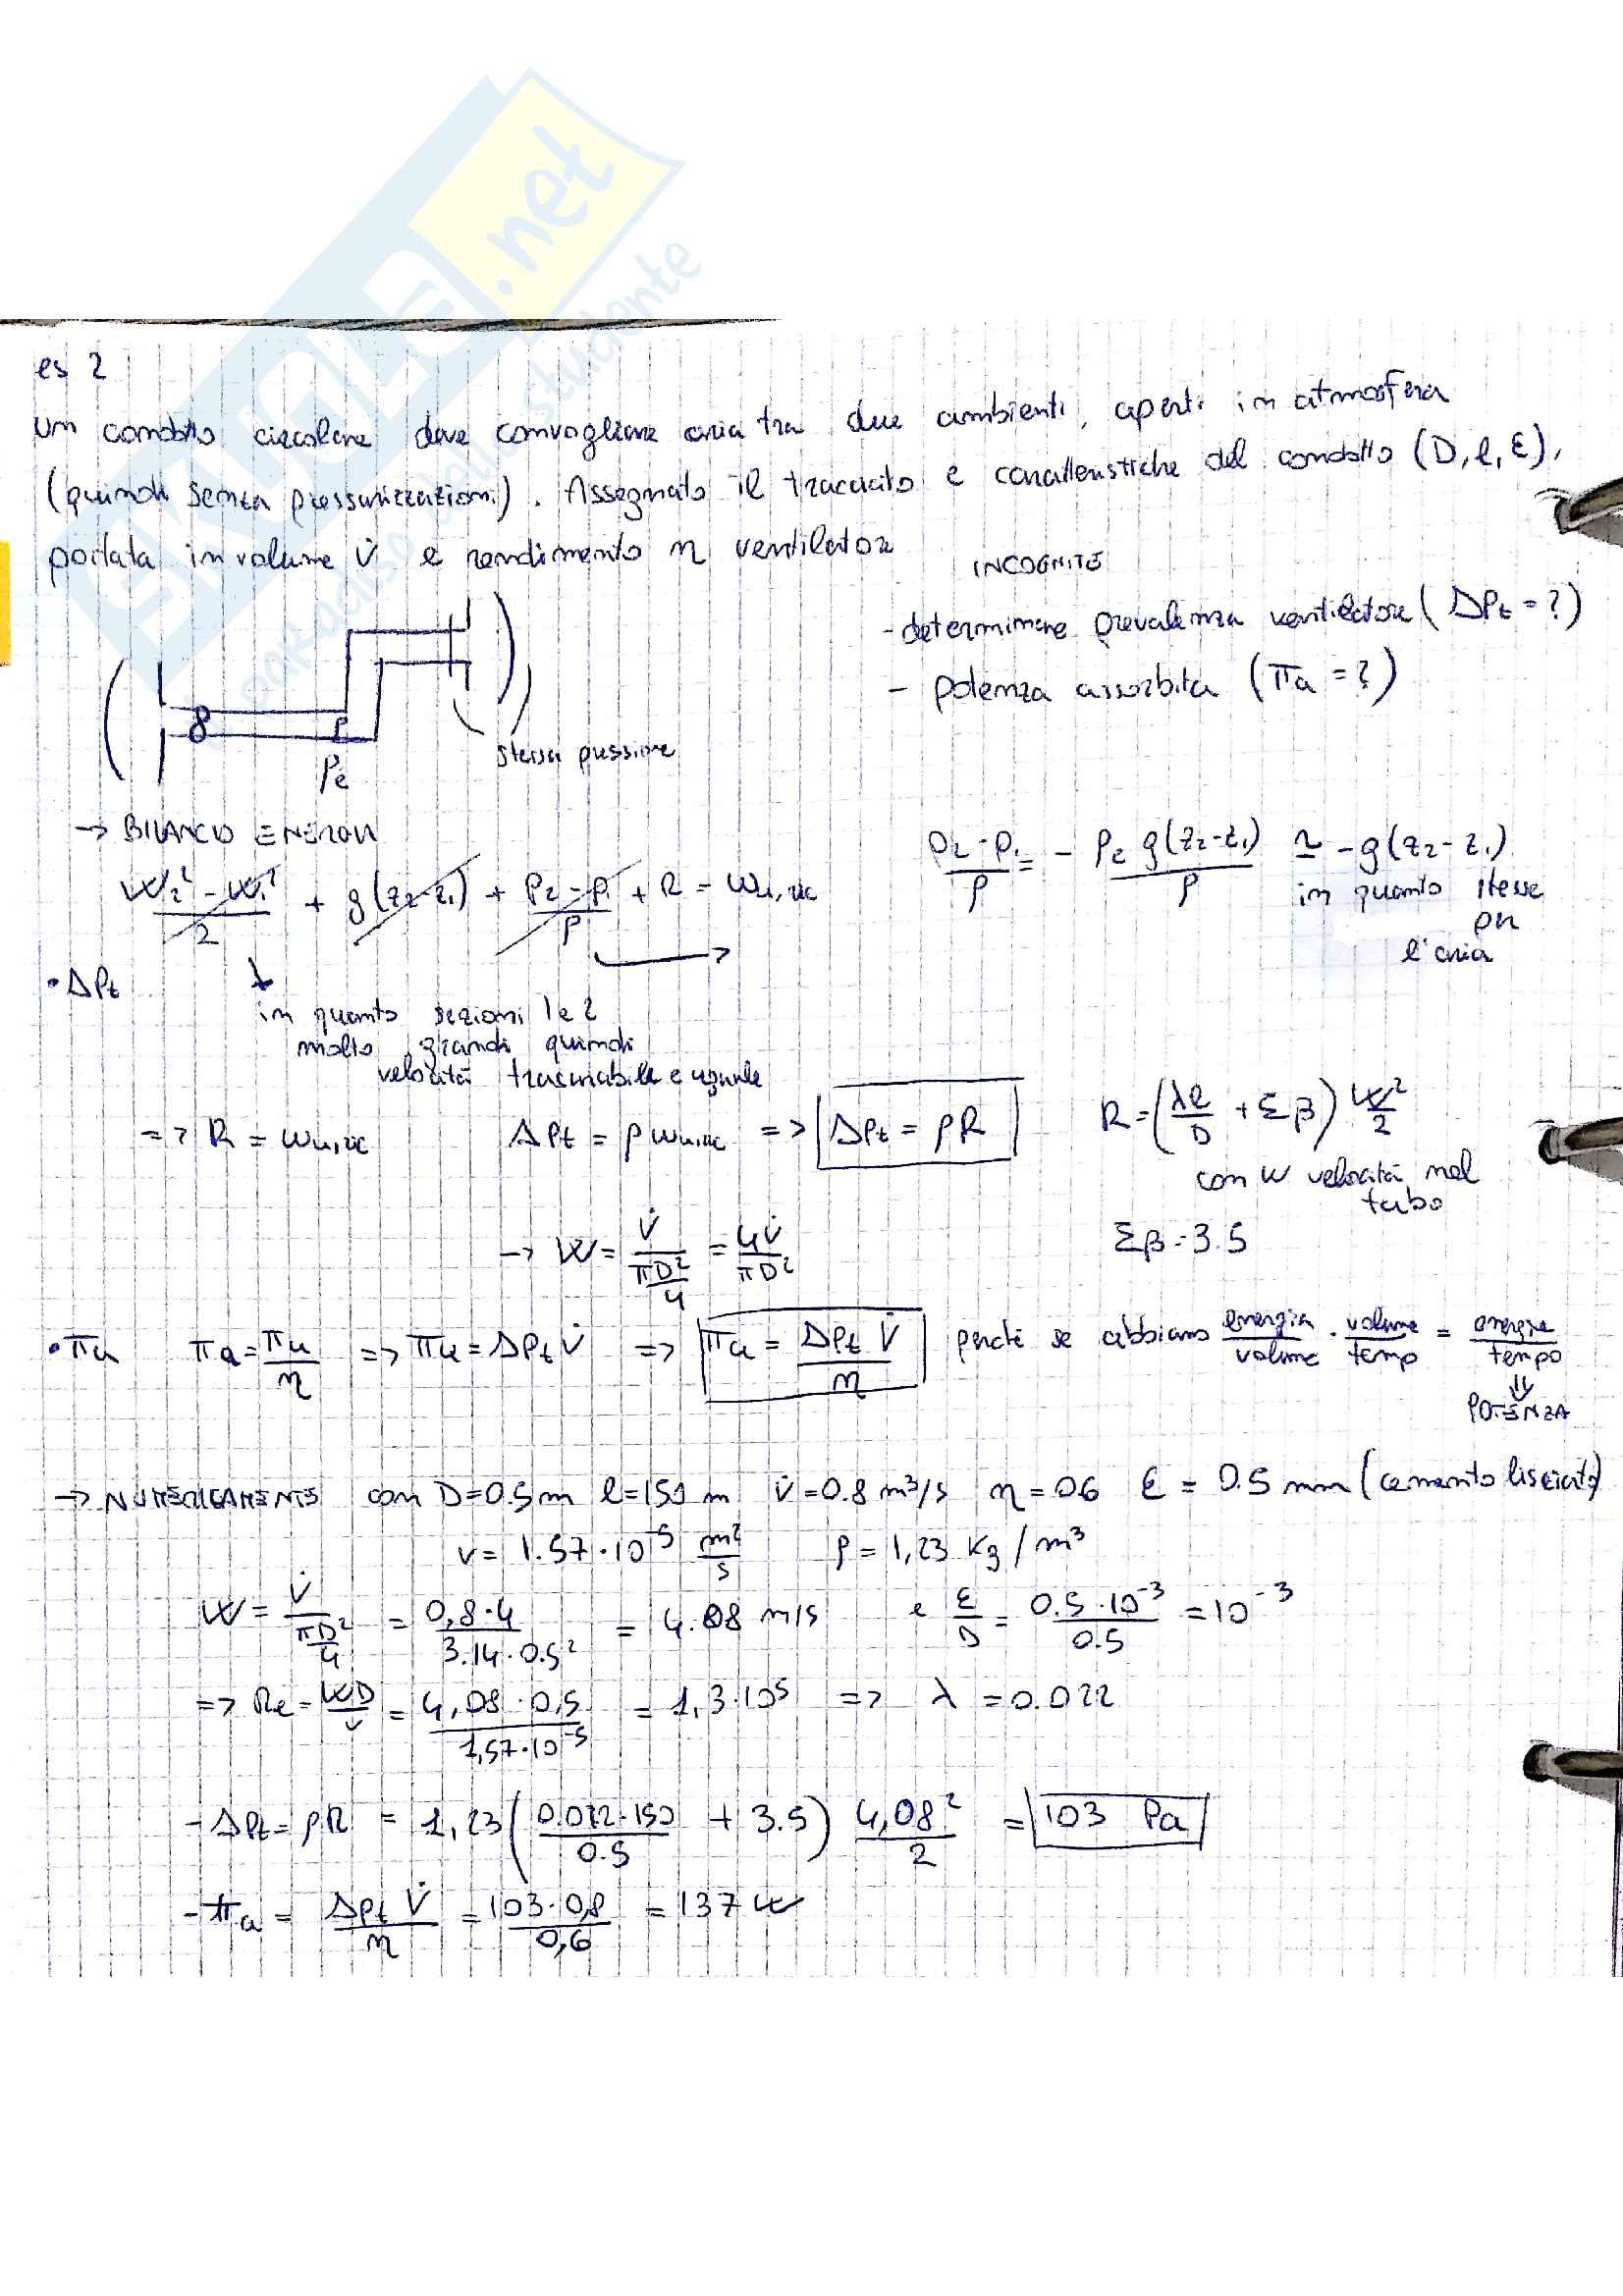 SKUOLA.net
paradiso dello studente
es 2
Un condotto circolare deve convogliare aria tra due ambienti, aperti in atmosfera
(quindi senza pressurizzazioni). Assegnato il tracciato e caratteristiche del condotto (D, l, ε),
portata in volume V̇ e rendimento η ventilatore
INCOGNITE
- determinare prevalenza ventilatore (Δpt = ?)
- potenza assorbita (πa = ?)
stessa pressione
ρe
→ BILANCIO ENERGIA
(w2² - w1²)/2 + g(z2-z1) + (p2-p1)/ρ + R = wu,vc
(p2-p1)/ρ = - ρe g(z2-z1)/ρ ≃ -g(z2-z1)
in quanto stesse
per
l'aria
• Δpt
in quanto sezioni 1 e 2
molto grandi quindi
velocità trascurabile e uguale
=> R = wu,vc Δpt = ρ wu,vc => Δpt = ρR R = (λl/D + Σβ) w²/2
con w velocità nel
tubo
→ w = V̇/(πD²/4) = 4V̇/πD² Σβ = 3.5
• πa πa = πu/η => πu = Δpt V̇ => πa = Δpt V̇/η perché se abbiamo energia/volume · volume/temp = energia/tempo
⇓
POTENZA
→ NUMERICAMENTE con D=0.5 m l=150 m V̇=0.8 m³/s η=0.6 ε = 0.5 mm (cemento lisciato)
ν = 1.57·10⁻⁵ m²/s ρ = 1,23 kg/m³
w = V̇/(πD²/4) = 0,8·4/3.14·0.5² = 4.08 m/s e ε/D = 0.5·10⁻³/0.5 = 10⁻³
=> Re = wD/ν = 4,08·0,5/1,57·10⁻⁵ = 1,3·10⁵ => λ = 0.022
- Δpt = ρR = 1,23 (0.022·150/0.5 + 3.5) 4,08²/2 = 103 Pa
- πa = Δpt V̇/η = 103·0,8/0,6 = 137 W